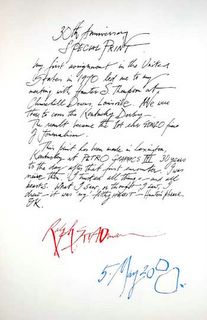 30th Anniversary
SPECIAL PRINT.
My first assignment in the United
States in 1970 led me to my
meeting with Hunter S Thompson at
Churchill Downs, Louisville. We were
there to cover the Kentucky Derby.
The result became the first GONZO piece
of Journalism.
This print has been made in Lexington,
Kentucky at PETRO III 30 years
to the day after that first encounter. I was
then. I trusted all things and all
hearts. What I saw, or thought I saw, I
it was my
O.K.
RALPH STEADman
5 May 2000